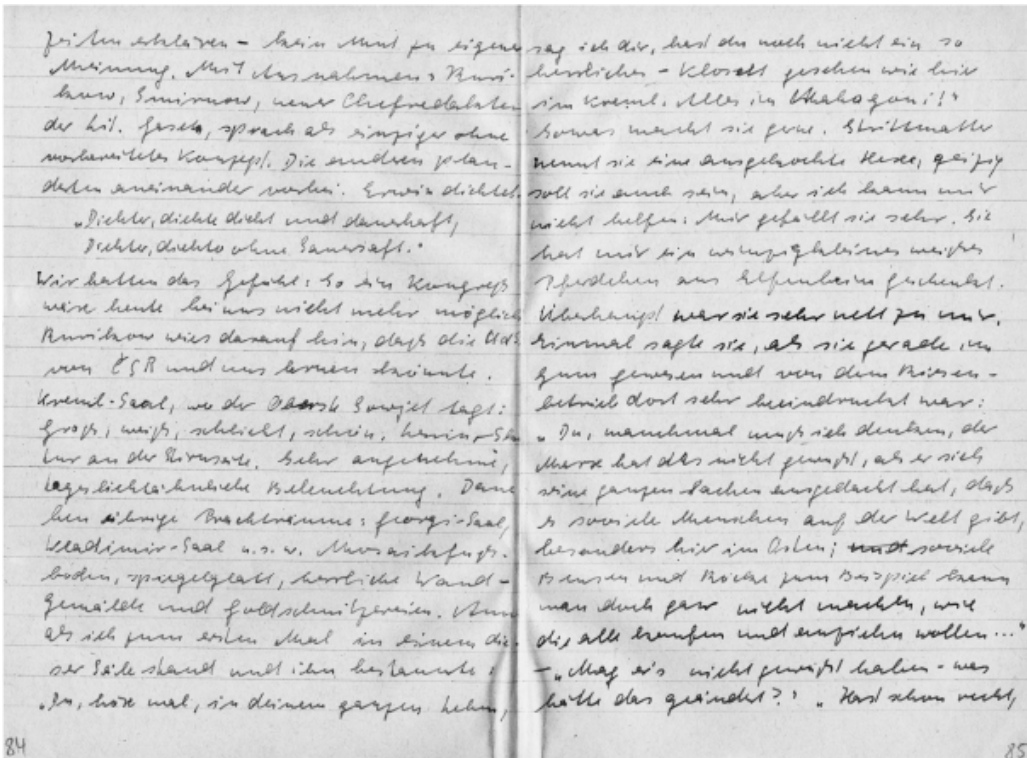 zeiten erklären – kein Mut zu eigener
Meinung. Mit Ausnahmen: Kuri-
kow, Smirnow, neuer Chefredakteur
der Lit. Gaseta, sprach als einziger ohne
vorbereitetes Konzept. Die andren plau-
derten aneinander vorbei. Erwin dichtet:
„Dichter, dichte dicht und dauerhaft,
Dichter, dichte ohne Sauersaft."
Wir hatten das Gefühl: So ein Kongreß
wäre heute bei uns nicht mehr möglich
wies darauf hin, daß die
von ČSR und uns lernen könnte.
Kreml-Saal, wo der Oberste Sowjet tagt:
Groß, weiß, schlicht, schön.
an der Stirnseite. Sehr angenehme,
tageslichtähnliche Beleuchtung. Dane
ben übrige Prachträume: Georgs-Saal,
Wladimir-Saal u.s.w. Mosaikfuß-
böden, spiegelglatt, herrliche Wand-
gemälde und Goldschnitzereien.
als ich zum ersten Mal in einem die-
ser Säle stand und ihn bestaunte:
„Du, höre mal, in deinem ganzen Leben,
84
sag ich dir, hast du noch nicht ein so
herrliches – Klosett gesehen wie hier
im Kreml. Alles in Mahagoni!"
Sowas macht sie gerne. Strittmatter
nennt sie eine ausgekochte Hexe, geizig
soll sie auch sein, aber ich kann mir
nicht helfen: Mir gefällt sie sehr. Sie
hat mir ein winzigkleines weißes
Pferdchen aus Elfenbein geschenkt.
Überhaupt war sie sehr nett zu mir.
Einmal sagte sie, als sie gerade im
Gum gewesen und von dem Riesen-
betrieb dort sehr beeindruckt war:
„Du, manchmal muß ich denken, der
Marx hat das nicht gewußt, als er sich
seine ganzen Sachen ausgedacht hat, daß
es soviele Menschen auf der Welt gibt,
besonders hier im Osten; und soviele
Blusen und Röcke zum Beispiel kann
man doch gar nicht machen, wie
die alle kaufen und anziehn wollen..."
– „Mag er's nicht gewußt haben – was
hätte das geändert?" „Hast schon recht,
85